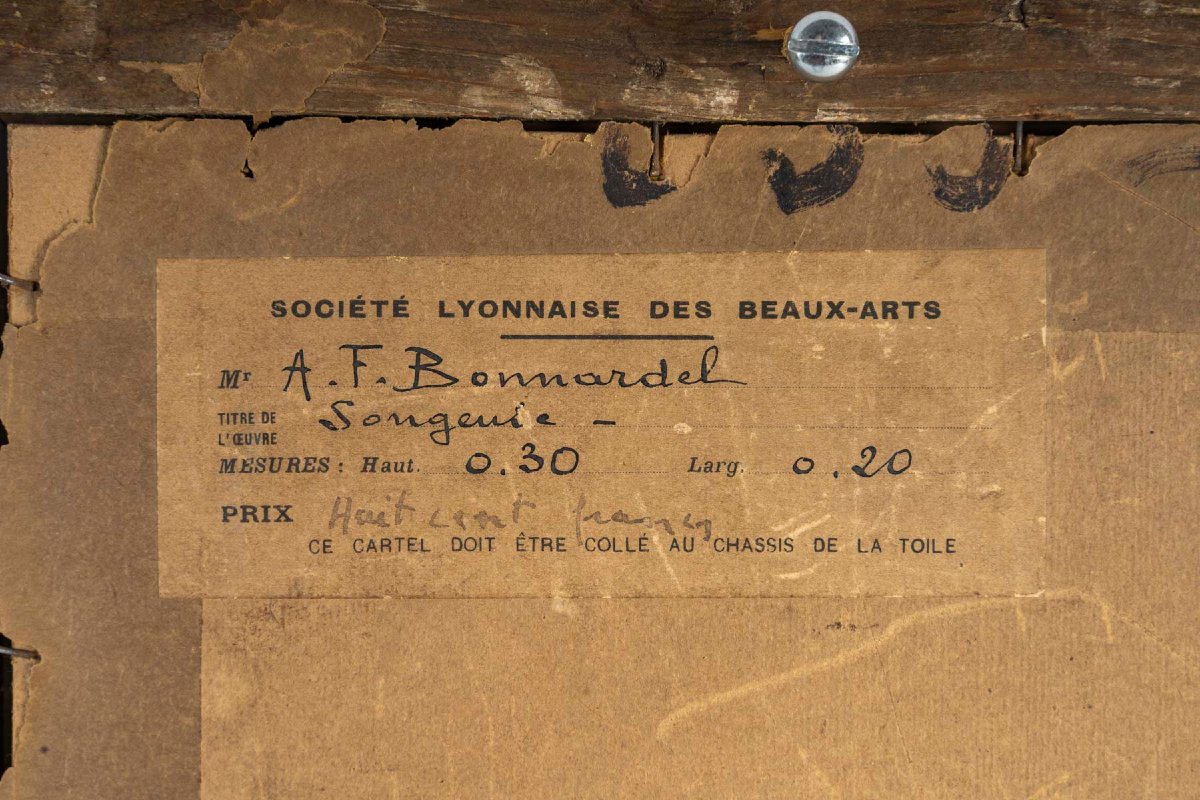 SOCIÉTÉ LYONNAISE DES BEAUX-ARTS
Mr A. F. Bonnardel
TITRE DE L'ŒUVRE Songeuse -
MESURES : Haut. 0.30 Larg. 0.20
PRIX Huit cent francs
CE CARTEL DOIT ÊTRE COLLÉ AU CHASSIS DE LA TOILE